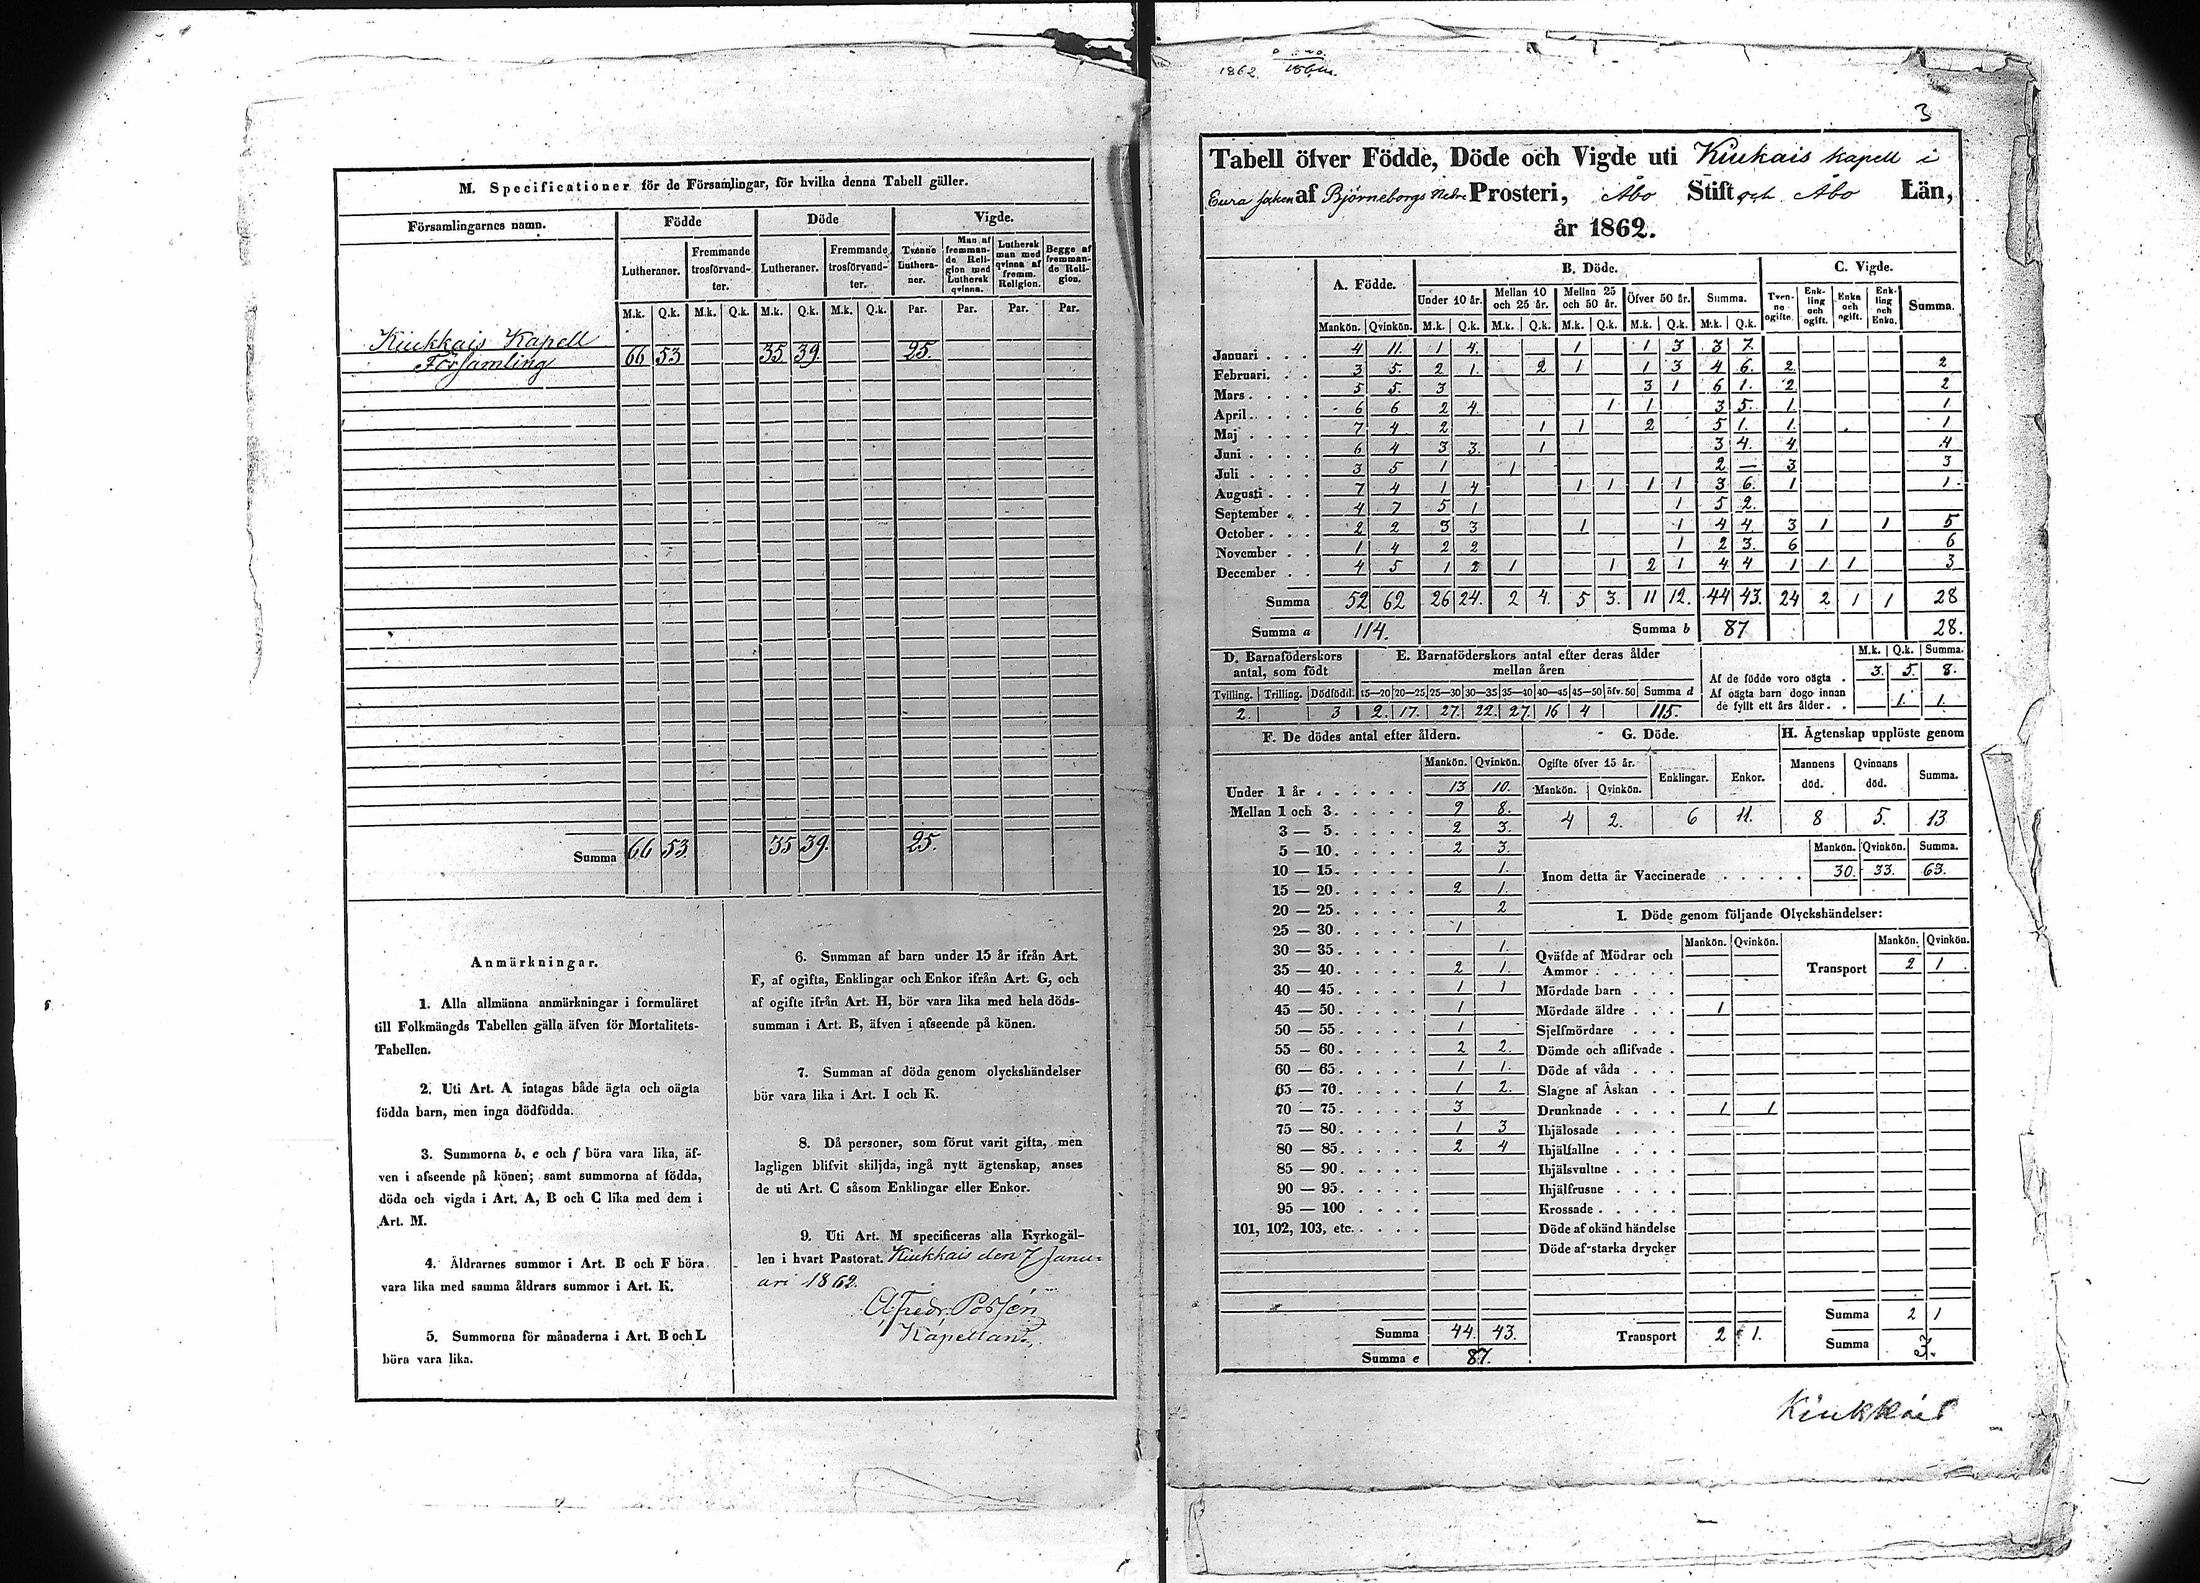 M. Specificationer för de Församlingar, för hvilka denna Tabell gäller.
Församlingarnes namn. Födde Döde Vigde.
Lutheraner. Fremmande trosförvandter. Lutheraner. Fremmande trosförvandter. Tvänne Lutheraner. Man af fremmande Religion med Luthersk qvinna. Luthersk man med qvinna af fremm. Religion. Begge af fremmande Religion.
M.k. Q.k. M.k. Q.k. M.k. Q.k. M.k. Q.k. Par. Par. Par. Par.
Kiukkais Kapell
Församling 66 53 35 39. 25.
Summa 66 53. 35 39. 25.
Anmärkningar.
1. Alla allmänna anmärkningar i formuläret
till Folkmängds Tabellen gälla äfven för Mortalitets-
Tabellen.
2. Uti Art. A intagas både ägta och oägta
födda barn, men inga dödfödda.
3. Summorna b, e och f böra vara lika, äf-
ven i afseende på könen; samt summorna af födda,
döda och vigda i Art. A, B och C lika med dem i
Art. M.
4. Äldrarnes summor i Art. B och F böra
vara lika med samma åldrars summor i Art. K.
5. Summorna för månaderna i Art. B och L
böra vara lika.
6. Summan af barn under 15 år ifrån Art.
F, af ogifta, Enklingar och Enkor ifrån Art. G, och
af ogifte ifrån Art. H, bör vara lika med hela döds-
summan i Art. B, äfven i afseende på könen.
7. Summan af döda genom olyckshändelser
bör vara lika i Art. I och K.
8. Då personer, som förut varit gifta, men
lagligen blifvit skiljda, ingå nytt ägtenskap, anses
de uti Art. C såsom Enklingar eller Enkor.
9. Uti Art. M specificeras alla Kyrkogäl-
len i hvart Pastorat. Kiukkais den 7 Janu-
ari 1862.
Kapellan.
1862
3
Tabell öfver Födde, Döde och Vigde uti Kiukais kapell i
Eura socken af Björneborgs Nedre Prosteri, Åbo Stift och Åbo Län,
år 1862.
A. Födde. B. Döde. C. Vigde.
Under 10 år. Mellan 10 och 25 år. Mellan 25 och 50 år. Öfver 50 år. Summa. Tvenne ogifte. Enkling och ogift. Enka och ogift. Enkling och Enka. Summa.
Mankön. Qvinkön. M.k. Q.k. M.k. Q.k. M.k. Q.k. M.k. Q.k. M.k. Q.k.
Januari . . . 4 11. 1 4. 1 1 3 3 7.
Februari. . . 3 5. 2 1. 2 1 1 3 4 6. 2. 2
Mars . . . . 5 5. 3 3 1 6 1. 2. 2
April. . . . 6 6 2 4. 1 1 3 5. 1. 1.
Maj . . . . 7 4 2 1 1 2 5 1. 1. 1
Juni . . . . 6 4 3 3. 1 3 4. 4 4
Juli . . . . 3 5 1 1 2 — 3 3
Augusti . . . 7 4 1 4 1 1 1 1 3 6. 1 1.
September . . 4 7 5 1 1 5 2.
October . . . 2 2 3 3 1 1 4 4 3 1 1 5
November . . 1 4 2 2 1 2 3. 6 6
December . . 4 5 1 2 1 1 2 1 4 4 1 1 1 3
Summa 52 62 26 24. 2 4. 5 3. 11 12. 44 43. 24 2 1 1 28
Summa a 114. Summa b 87 28.
D. Barnaföderskors antal, som födt
Tvilling. Trilling. Dödfödd.
2. 3
E. Barnaföderskors antal efter deras ålder mellan åren
15—20 20—25 25—30 30—35 35—40 40—45 45—50 öfv. 50 Summa d
2. 17. 27. 22. 27. 16 4 115.
M.k. Q.k. Summa.
Af de födde voro oägta . 3. 5. 8.
Af oägta barn dogo innan
de fyllt ett års ålder . . 1. 1.
F. De dödes antal efter åldern.
Mankön. Qvinkön.
Under 1 år . . . . . . 13 10.
Mellan 1 och 3. . . . . 9 8.
3 — 5. . . . . 2 3.
5 — 10. . . . . 2 3.
10 — 15. . . . . 1.
15 — 20. . . . . 2 1.
20 — 25. . . . . 2
25 — 30. . . . . 1
30 — 35. . . . . 1.
35 — 40. . . . . 2 1.
40 — 45. . . . . 1 1
45 — 50. . . . . 1
50 — 55. . . . . 1
55 — 60. . . . . 2 2.
60 — 65. . . . . 1 1.
65 — 70. . . . . 1 2.
70 — 75. . . . . 3
75 — 80. . . . . 1 3
80 — 85. . . . . 2 4
85 — 90. . . . .
90 — 95. . . . .
95 — 100 . . . .
101, 102, 103, etc. . . . .
Summa 44. 43.
Summa e 87.
G. Döde.
Ogifte öfver 15 år. Enklingar. Enkor.
Mankön. Qvinkön.
4 2. 6 11.
H. Ägtenskap upplöste genom
Mannens död. Qvinnans död. Summa.
8 5. 13
Mankön. Qvinkön. Summa.
Inom detta år Vaccinerade . . . . . 30. 33. 63.
I. Döde genom följande Olyckshändelser:
Mankön. Qvinkön. Mankön. Qvinkön.
Qväfde af Mödrar och
Ammor . . . . . Transport 2 1
Mördade barn . . .
Mördade äldre . . . 1
Sjelfmördare . . .
Dömde och aflifvade .
Döde af våda . . .
Slagne af Åskan . .
Drunknade . . . . 1 1
Ihjälosade . . . .
Ihjälfallne . . . .
Ihjälsvultne . . . .
Ihjälfrusne . . . .
Krossade . . . . .
Döde af okänd händelse
Döde af starka drycker
Summa 2 1
Transport 2 1.
Summa 3.
Kiukkais